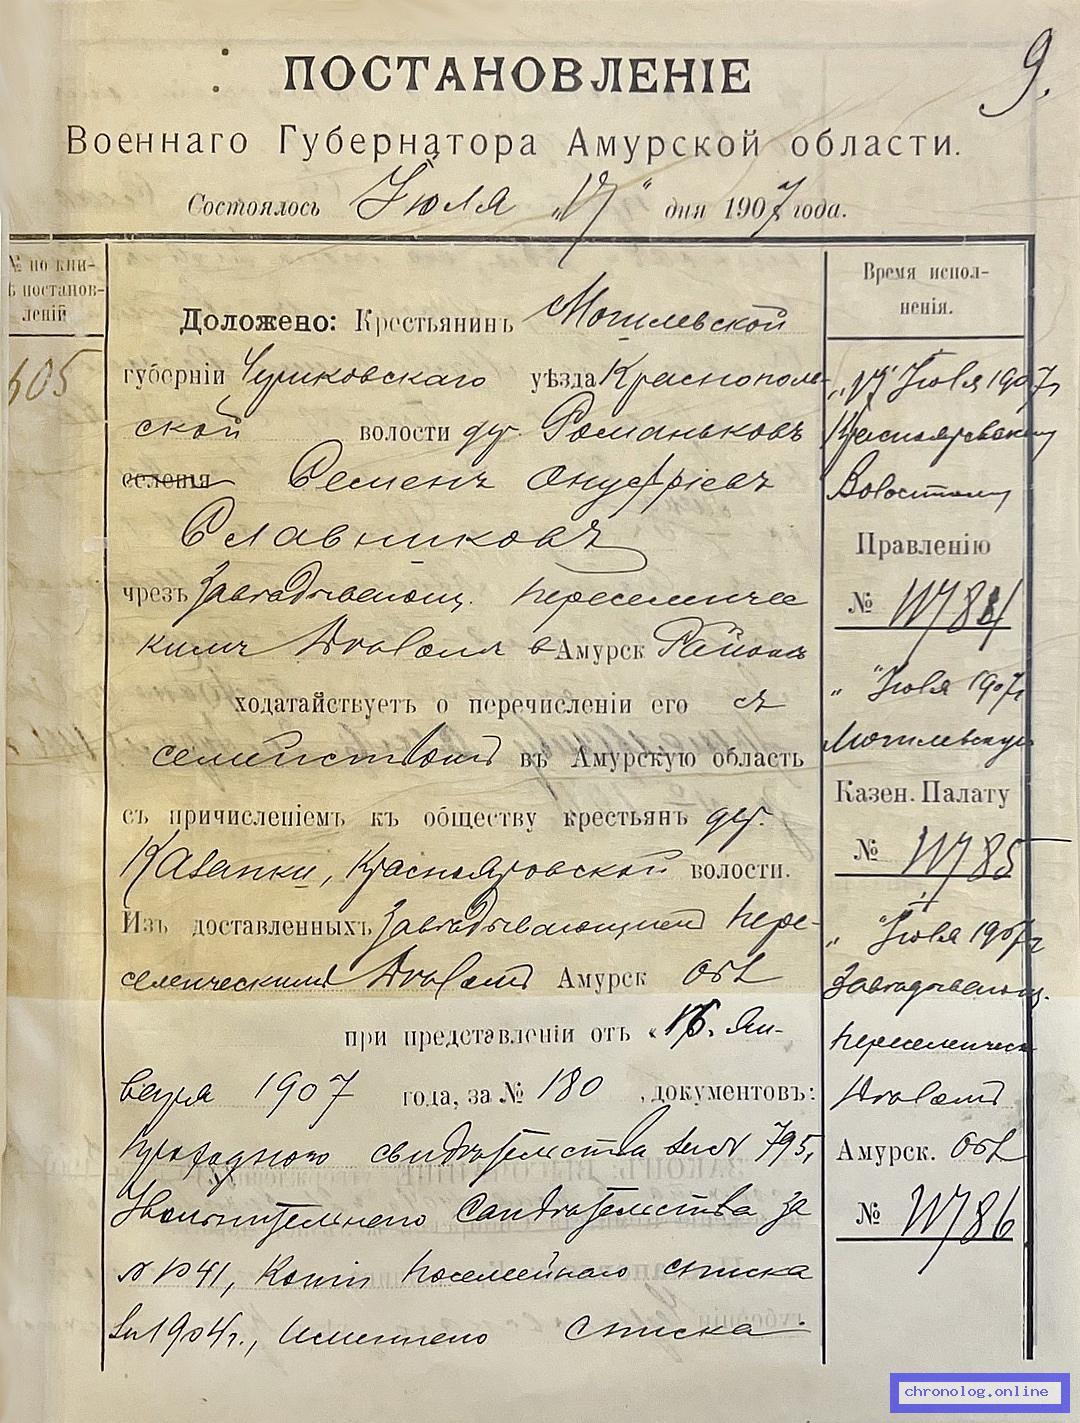 9.
ПОСТАНОВЛЕНІЕ
Военнаго Губернатора Амурской области.
Состоялось Іюля „17" дня 1907 года.
№ по кни-
ѣ постанов-
леній
605
Доложено: Крестьянинъ Могилевской
губерніи Чериковскаго уѣзда Краснополь-
ской волости дер. Романьковъ
селенія Семенъ Онуфріевъ
Славниковъ
чрезъ Завѣдывающ. Переселенчес
кимъ Дѣломъ в Амурск Районѣ
ходатайствуетъ о перечисленіи его съ
семействомъ въ Амурскую область
съ причисленіемъ къ обществу крестьянъ дер.
Казанки, Краснояровской волости.
Изъ доставленныхъ Завѣдывающимъ Пере-
селенческимъ Дѣломъ Амурск Обл
при представленіи отъ „16. Ян-
варя 1907 года, за № 180, документовъ:
Проходного свидѣтельства за № 795,
Увольнительнаго Свидѣтельства за
№ 41, Копіи Посемейнаго списка
за 1904 г., Именного списка
Время испол-
ненія.
„17" Іюля 1907 г
Краснояровскому
Волостному
Правленію
№ 11784
„ " Іюля 1907 г
Могилевскую
Казен. Палату
№ 11785
„ " Іюля 1907 г
Завѣдывающ.
Переселенческ
Дѣломъ
Амурск. Обл
№ 11786
chronolog.online